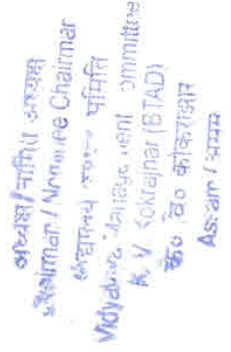 अध्यक्ष / नामित अध्यक्ष
Chairman / Nominee Chairman
विद्यालय समिति
Vidyalaya Management Committee
K. V. Kokrajhar (BTAD)
के० वि० कोकराझार
Assam / असम